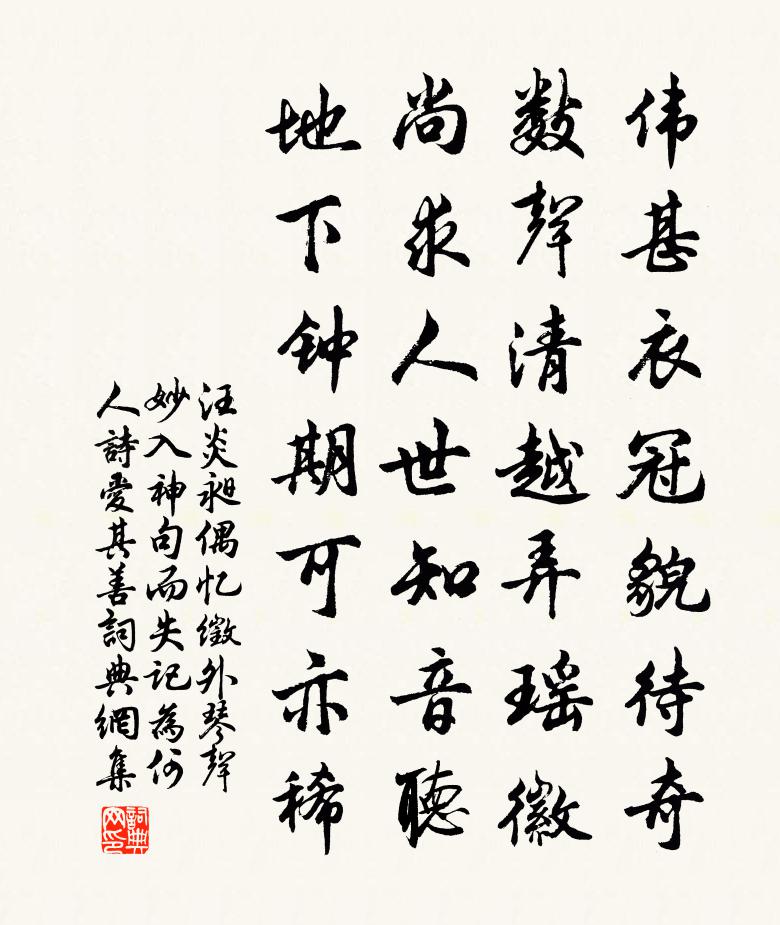 伟甚衣冠貌待奇
数聲清越弄瑶徽
尚求人世知音聽
地下钟期可亦稀
汪炎昶偶忆徽外琴聲
妙入神句而失記為何
人詩愛其善詞典網集
詞典网印